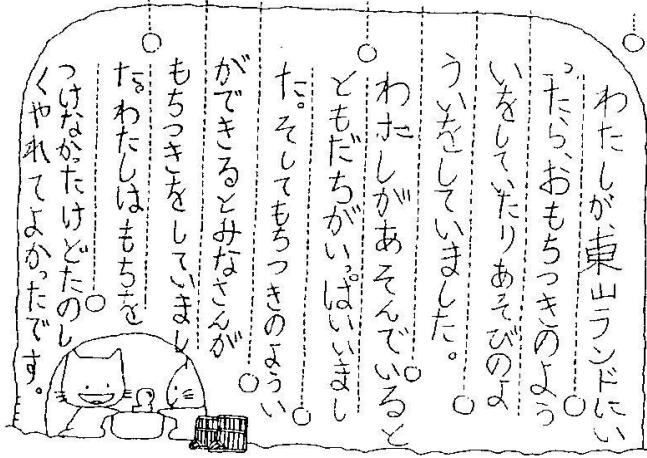 わたしが、東山ランドにい
ったら、おもちつきのよう
いをしていたりあそびのよ
ういをしていました。
わたしがあそんでいると
ともだちがいっぱいいまし
た。そしてもちつきのようい
ができるとみなさんが
もちつきをしていまし
た。わたしはもちを
つけなかったけどたのし
くやれてよかったです。